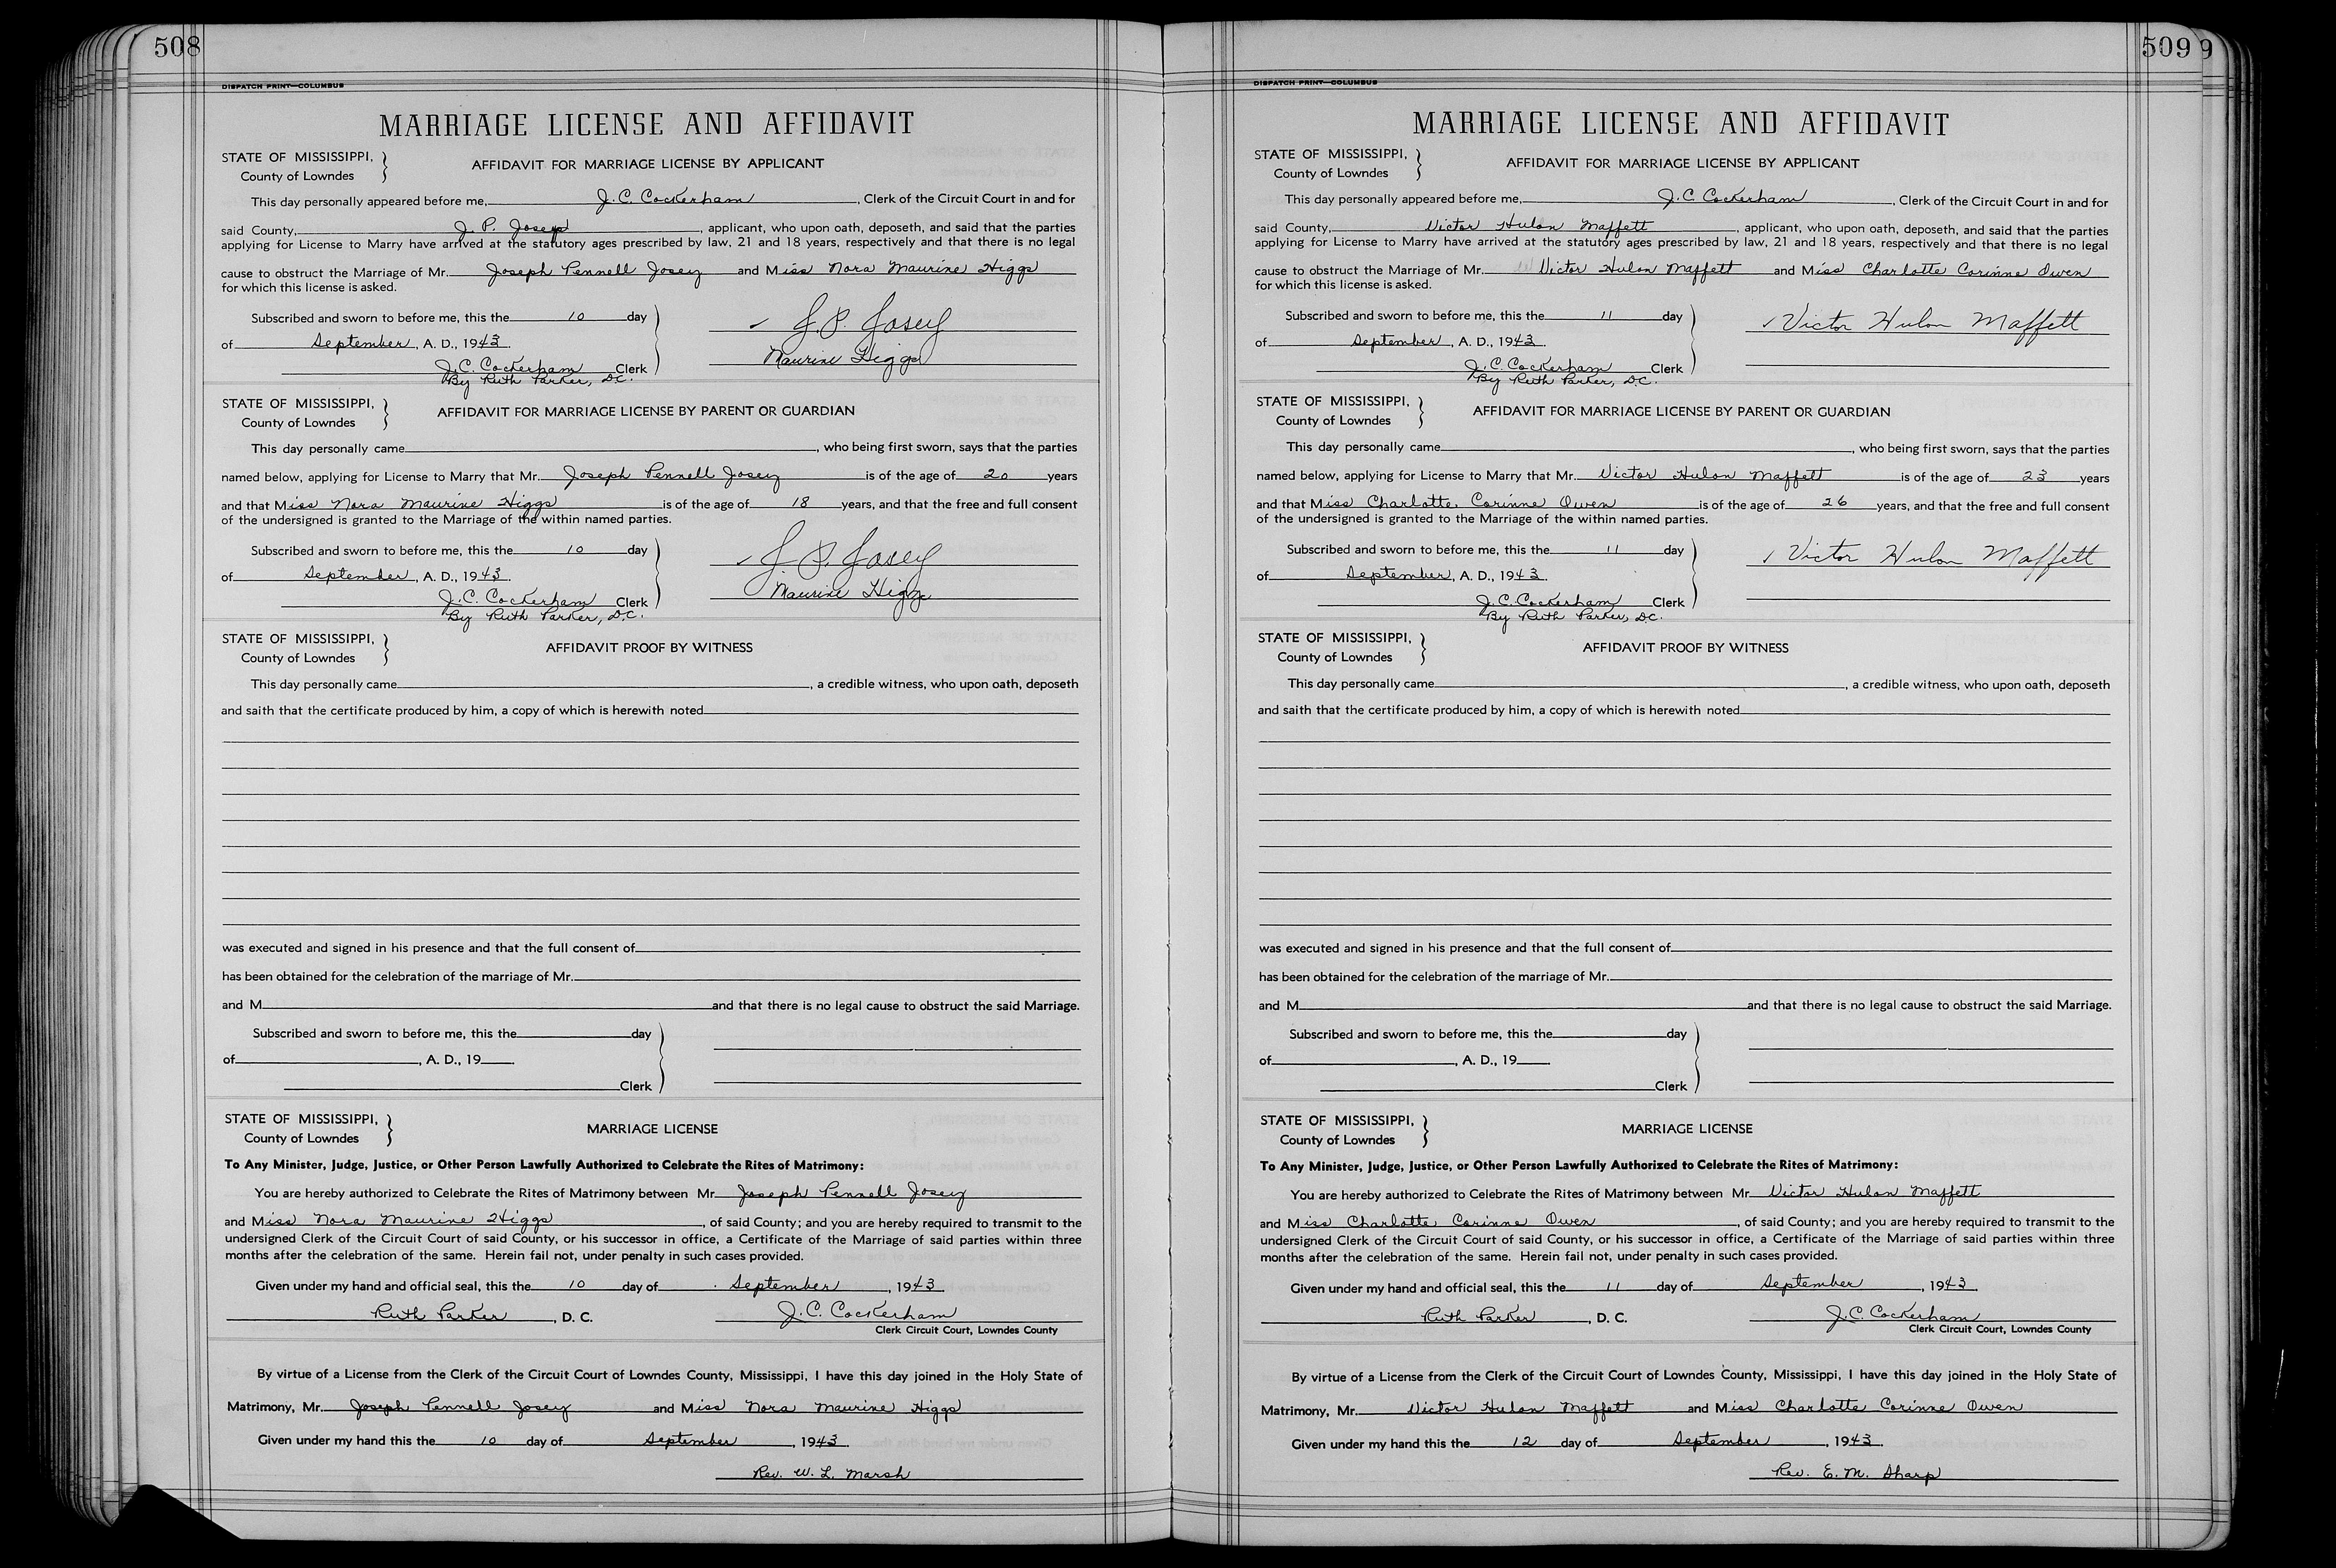 508
DISPATCH PRINT—COLUMBUS
MARRIAGE LICENSE AND AFFIDAVIT
STATE OF MISSISSIPPI,
County of Lowndes
AFFIDAVIT FOR MARRIAGE LICENSE BY APPLICANT
This day personally appeared before me, J. C. Cockerham, Clerk of the Circuit Court in and for
said County, J. P. Josey, applicant, who upon oath, deposeth, and said that the parties
applying for License to Marry have arrived at the statutory ages prescribed by law, 21 and 18 years, respectively and that there is no legal
cause to obstruct the Marriage of Mr. Joseph Pennell Josey and Miss Nora Maurine Higgs
for which this license is asked.
Subscribed and sworn to before me, this the 10 day
of September, A. D., 1943.
J. C. Cockerham Clerk
By Ruth Parker, D.C.
J. P. Josey
Maurine Higgs
STATE OF MISSISSIPPI,
County of Lowndes
AFFIDAVIT FOR MARRIAGE LICENSE BY PARENT OR GUARDIAN
This day personally came , who being first sworn, says that the parties
named below, applying for License to Marry that Mr. Joseph Pennell Josey is of the age of 20 years
and that Miss Nora Maurine Higgs is of the age of 18 years, and that the free and full consent
of the undersigned is granted to the Marriage of the within named parties.
Subscribed and sworn to before me, this the 10 day
of September, A. D., 1943.
J. C. Cockerham Clerk
By Ruth Parker, D.C.
J. P. Josey
Maurine Higgs
STATE OF MISSISSIPPI,
County of Lowndes
AFFIDAVIT PROOF BY WITNESS
This day personally came , a credible witness, who upon oath, deposeth
and saith that the certificate produced by him, a copy of which is herewith noted
was executed and signed in his presence and that the full consent of
has been obtained for the celebration of the marriage of Mr.
and M and that there is no legal cause to obstruct the said Marriage.
Subscribed and sworn to before me, this the day
of , A. D., 19 .
Clerk
STATE OF MISSISSIPPI,
County of Lowndes
MARRIAGE LICENSE
To Any Minister, Judge, Justice, or Other Person Lawfully Authorized to Celebrate the Rites of Matrimony:
You are hereby authorized to Celebrate the Rites of Matrimony between Mr. Joseph Pennell Josey
and Miss Nora Maurine Higgs, of said County; and you are hereby required to transmit to the
undersigned Clerk of the Circuit Court of said County, or his successor in office, a Certificate of the Marriage of said parties within three
months after the celebration of the same. Herein fail not, under penalty in such cases provided.
Given under my hand and official seal, this the 10 day of September, 1943.
Ruth Parker, D. C. J. C. Cockerham
Clerk Circuit Court, Lowndes County
By virtue of a License from the Clerk of the Circuit Court of Lowndes County, Mississippi, I have this day joined in the Holy State of
Matrimony, Mr. Joseph Pennell Josey and Miss Nora Maurine Higgs
Given under my hand this the 10 day of September, 1943.
Rev. W. L. Marsh
509
9
DISPATCH PRINT—COLUMBUS
MARRIAGE LICENSE AND AFFIDAVIT
STATE OF MISSISSIPPI,
County of Lowndes
AFFIDAVIT FOR MARRIAGE LICENSE BY APPLICANT
This day personally appeared before me, J. C. Cockerham, Clerk of the Circuit Court in and for
said County, Victor Hulon Maffett, applicant, who upon oath, deposeth, and said that the parties
applying for License to Marry have arrived at the statutory ages prescribed by law, 21 and 18 years, respectively and that there is no legal
cause to obstruct the Marriage of Mr. Victor Hulon Maffett and Miss Charlotte Corinne Owen
for which this license is asked.
Subscribed and sworn to before me, this the 11 day
of September, A. D., 1943.
J. C. Cockerham Clerk
By Ruth Parker, D.C.
Victor Hulon Maffett
STATE OF MISSISSIPPI,
County of Lowndes
AFFIDAVIT FOR MARRIAGE LICENSE BY PARENT OR GUARDIAN
This day personally came , who being first sworn, says that the parties
named below, applying for License to Marry that Mr. Victor Hulon Maffett is of the age of 23 years
and that Miss Charlotte Corinne Owen is of the age of 26 years, and that the free and full consent
of the undersigned is granted to the Marriage of the within named parties.
Subscribed and sworn to before me, this the 11 day
of September, A. D., 1943.
J. C. Cockerham Clerk
By Ruth Parker, D.C.
Victor Hulon Maffett
STATE OF MISSISSIPPI,
County of Lowndes
AFFIDAVIT PROOF BY WITNESS
This day personally came , a credible witness, who upon oath, deposeth
and saith that the certificate produced by him, a copy of which is herewith noted
was executed and signed in his presence and that the full consent of
has been obtained for the celebration of the marriage of Mr.
and M and that there is no legal cause to obstruct the said Marriage.
Subscribed and sworn to before me, this the day
of , A. D., 19 .
Clerk
STATE OF MISSISSIPPI,
County of Lowndes
MARRIAGE LICENSE
To Any Minister, Judge, Justice, or Other Person Lawfully Authorized to Celebrate the Rites of Matrimony:
You are hereby authorized to Celebrate the Rites of Matrimony between Mr. Victor Hulon Maffett
and Miss Charlotte Corinne Owen, of said County; and you are hereby required to transmit to the
undersigned Clerk of the Circuit Court of said County, or his successor in office, a Certificate of the Marriage of said parties within three
months after the celebration of the same. Herein fail not, under penalty in such cases provided.
Given under my hand and official seal, this the 11 day of September, 1943.
Ruth Parker, D. C. J. C. Cockerham
Clerk Circuit Court, Lowndes County
By virtue of a License from the Clerk of the Circuit Court of Lowndes County, Mississippi, I have this day joined in the Holy State of
Matrimony, Mr. Victor Hulon Maffett and Miss Charlotte Corinne Owen
Given under my hand this the 12 day of September, 1943.
Rev. E. M. Sharp